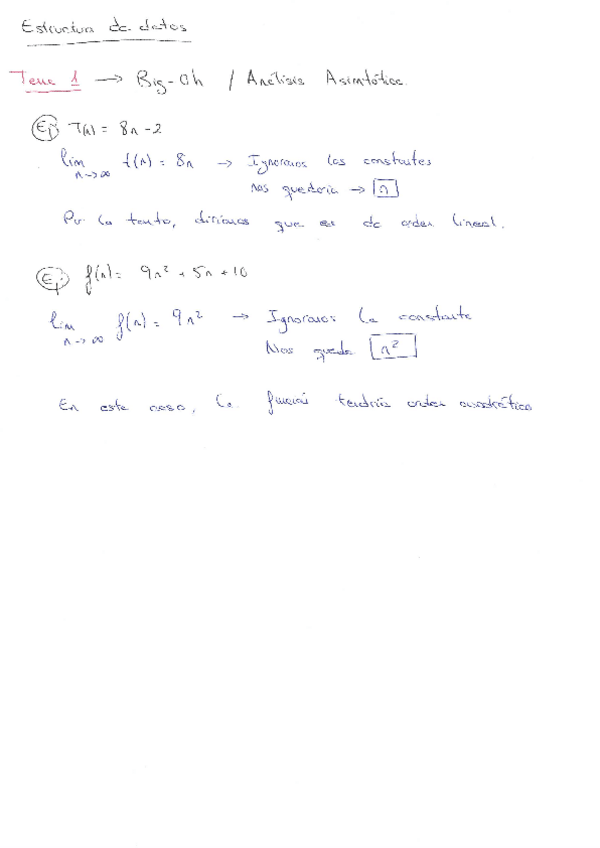 Estructura de datos
Tema 1 → Big-Oh / Análisis Asintótico.
Ej: T(n) = 8n - 2
lim n→∞ f(n) = 8n → Ignoramos las constantes
nos quedaría → n
Por lo tanto, diríamos que es de orden lineal.
Ej: f(n) = 9n² + 5n + 10
lim n→∞ f(n) = 9n² → Ignoramos la constante
Nos queda n²
En este caso, la función tendría orden cuadrático